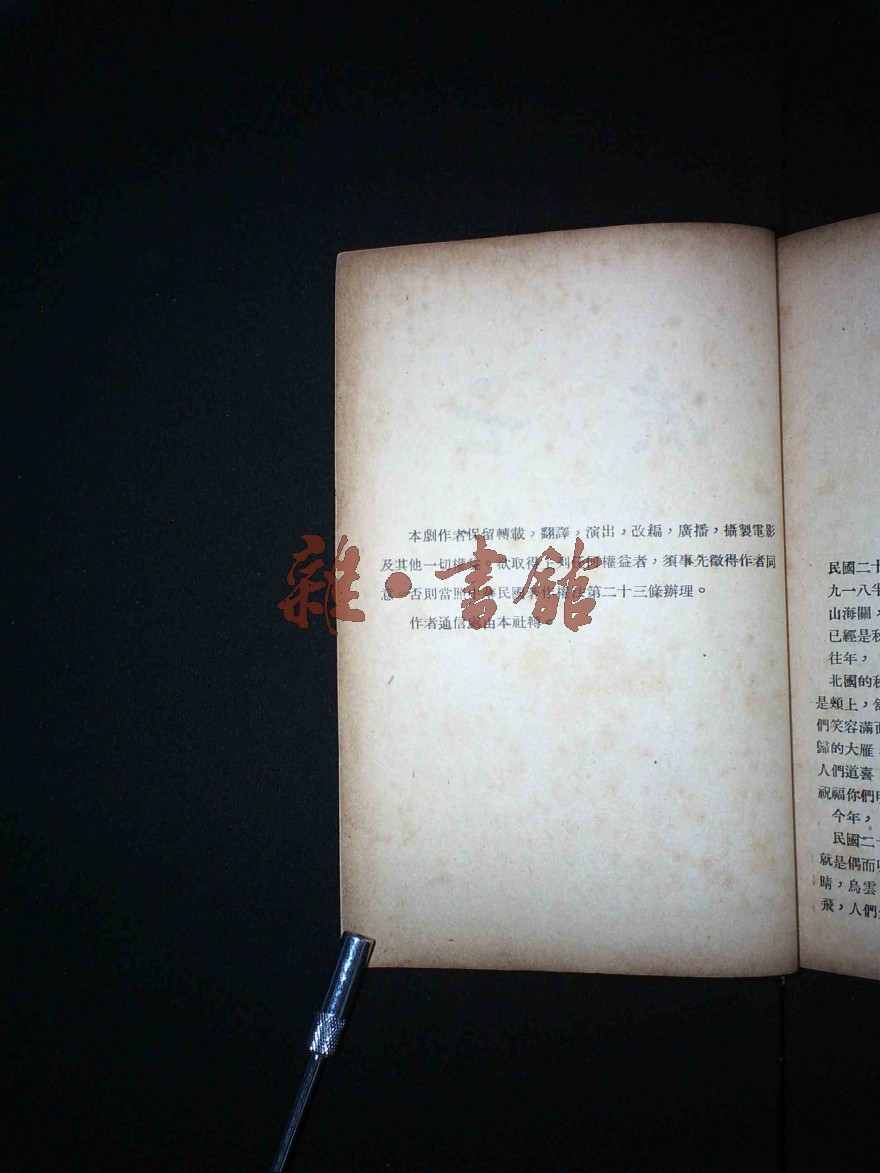 本劇作者保留轉載,翻譯,演出,改編,廣播,攝製電影
及其他一切權益。欲取得上列任何權益者,須事先徵得作者同
意。否則當照中華民國著作權法第二十三條辦理。
作者通信處由本社轉。
雜·書館
民國二十
九一八
山海關,
已經是秋
往年,
北國的秋
是頰上,
們笑容滿面
歸的大雁
人們道喜
祝福你們
今年,
民國二十
就是偶而
晴,烏雲
飛,人們